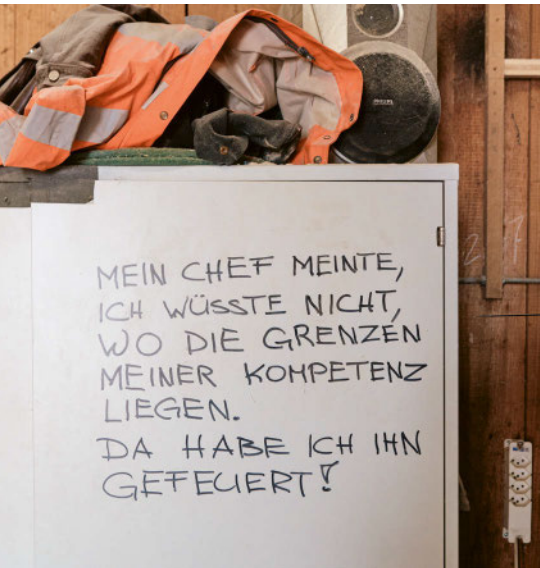 MEIN CHEF MEINTE,
ICH WÜSSTE NICHT,
WO DIE GRENZEN
MEINER KOMPETENZ
LIEGEN.
DA HABE ICH IHN
GEFEUERT!